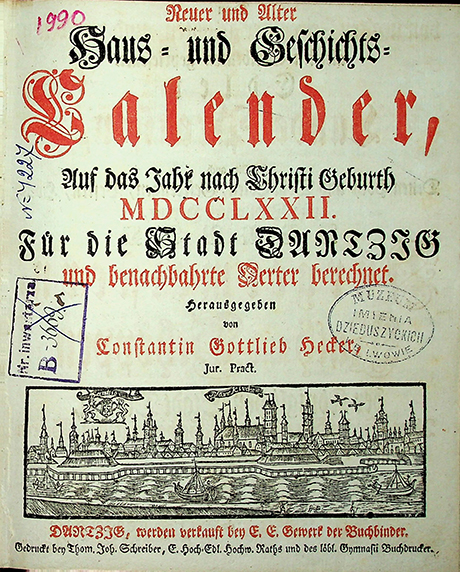 1990
Neuer und Alter
Haus- und Geschichts-
Calender,
Auf das Jahr nach Christi Geburth
MDCCLXXII.
Für die Stadt DANTZIG
und benachbahrte Oerter berechnet.
Herausgegeben
von
Constantin Gottlieb Hecker,
Jur. Pract.
DANTZIG, werden verkauft bey E. E. Gewerk der Buchbinder.
Gedruckt bey Thom. Joh. Schreiber, E. Hoch-Edl. Hochw. Raths und des löbl. Gymnasii Buchdrucker.
MUZEUM
IMIENIA
DZIEDUSZYCKICH
LWOWIE
Nr. inwentarza
B